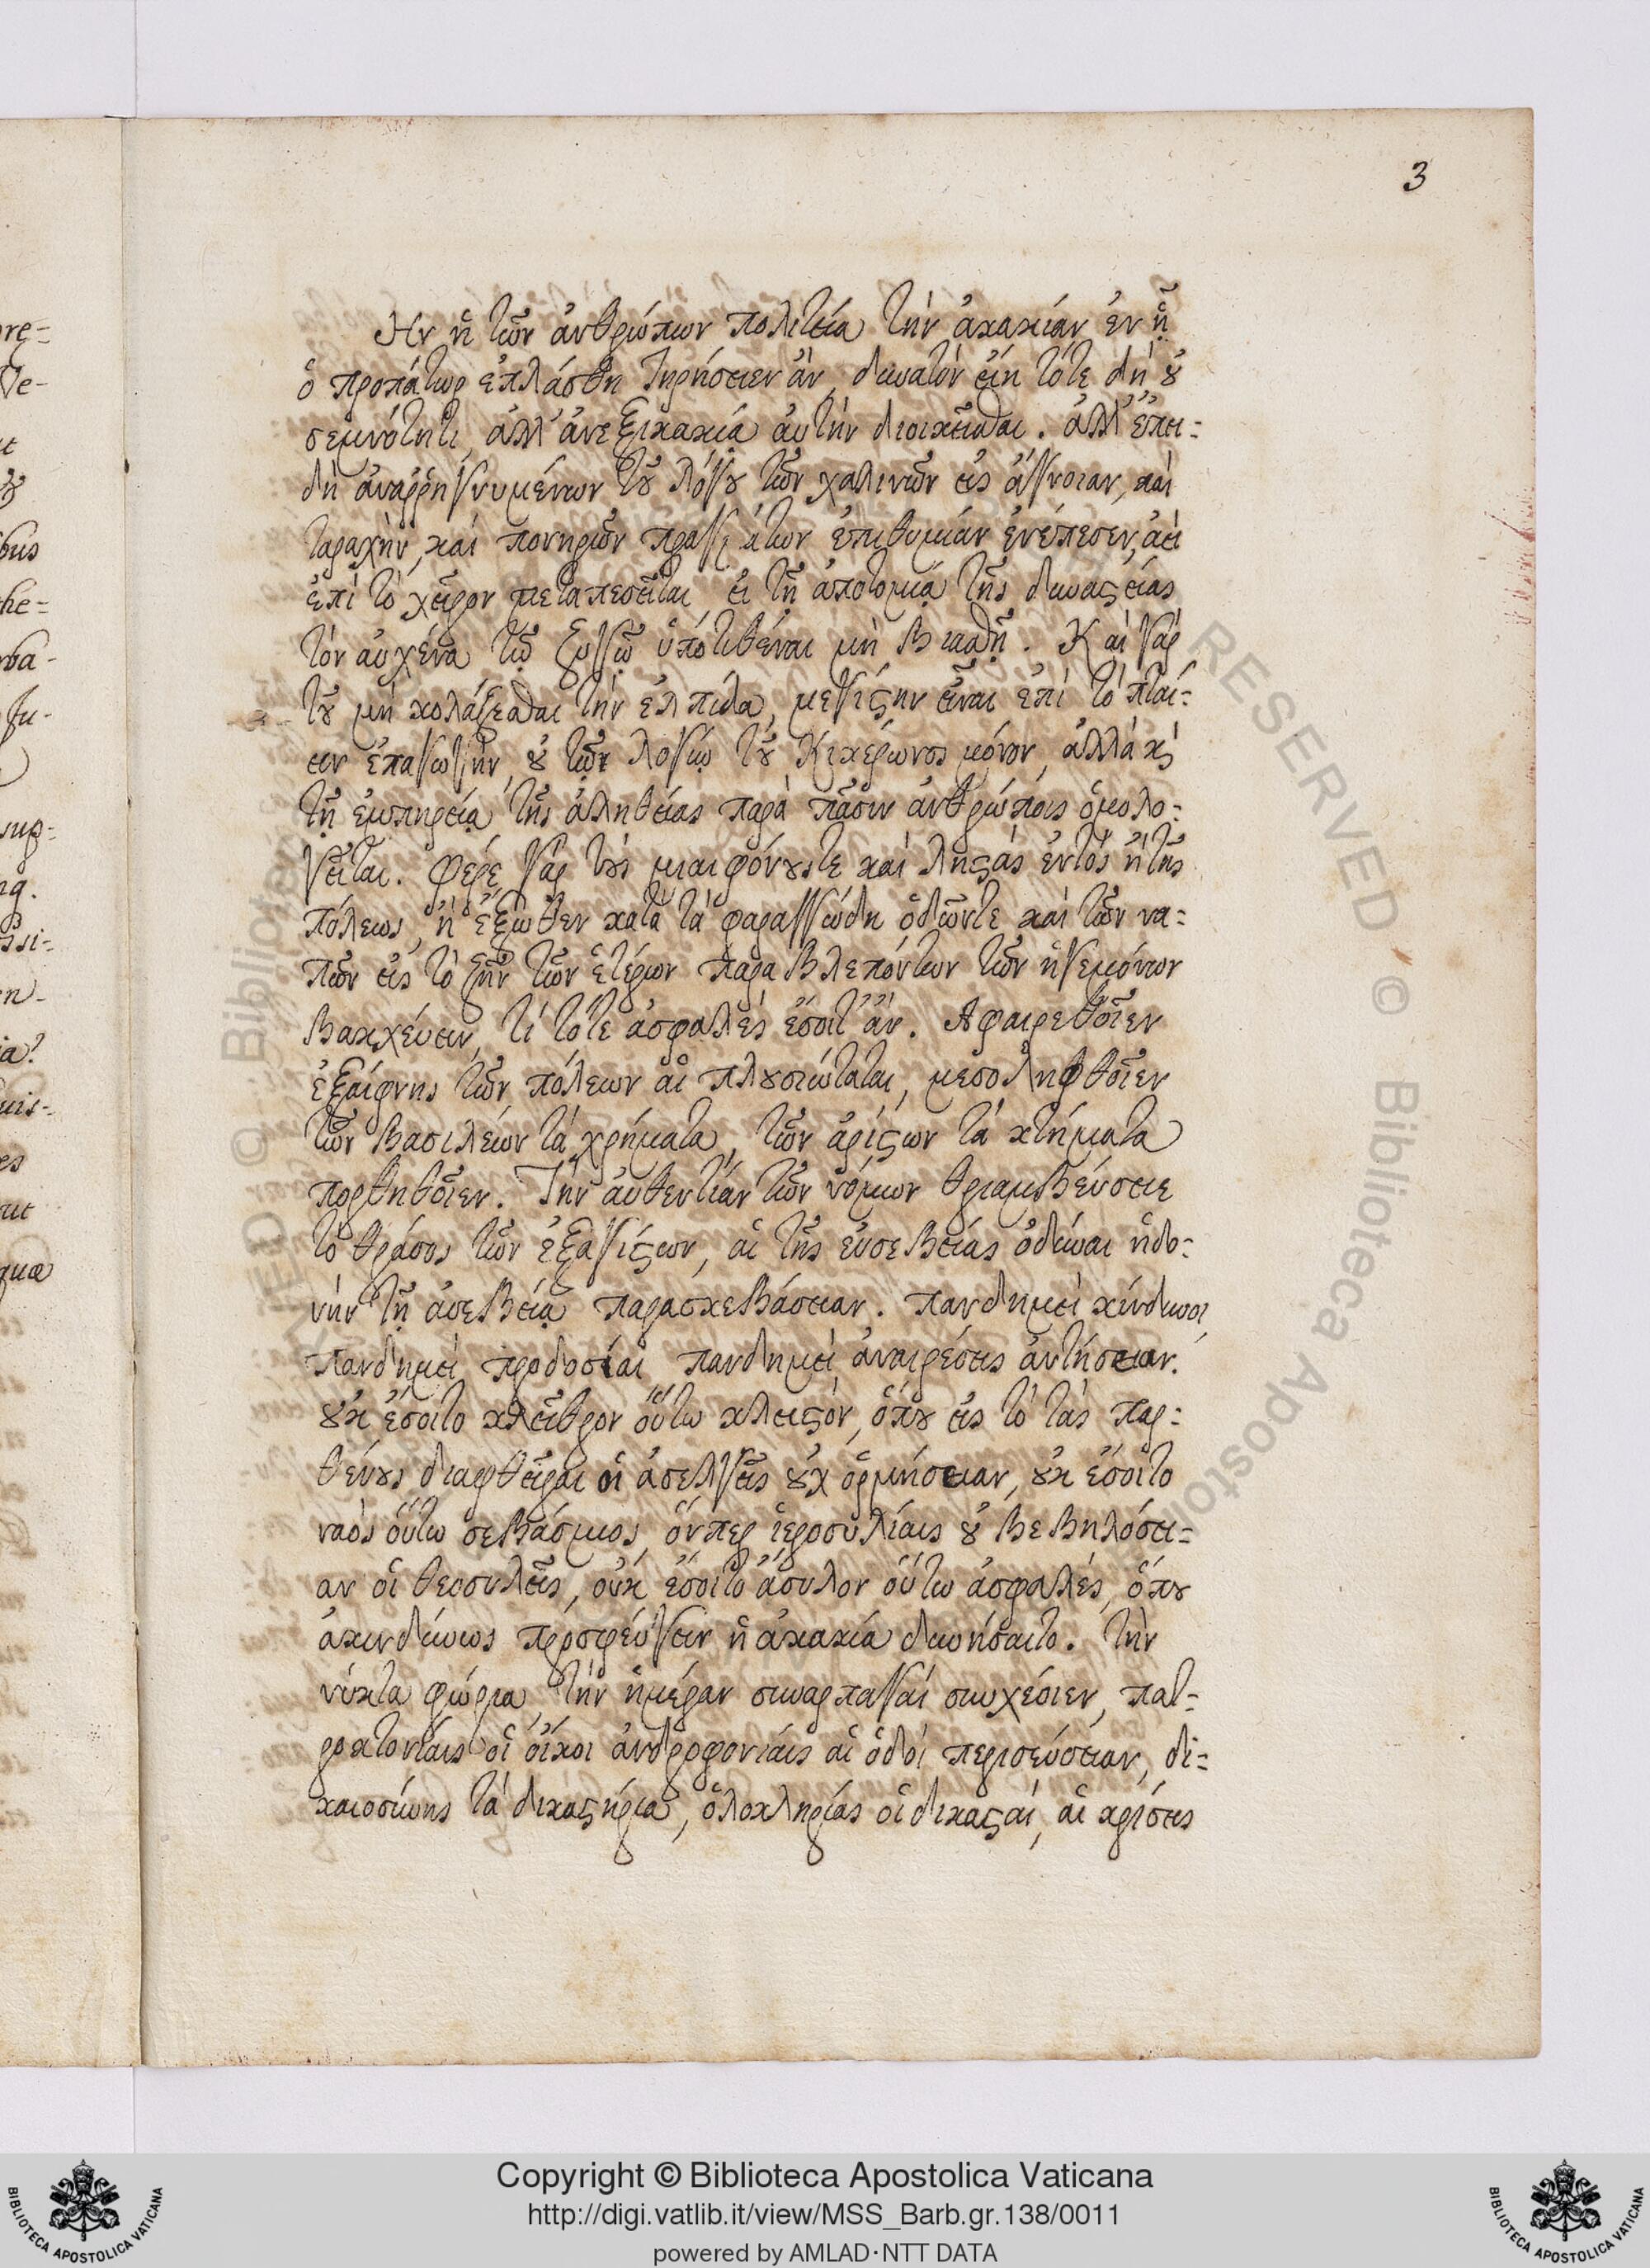 3
Ην ἡ τῶν ἀνθρώπων πολιτεία τὴν ἀκακίαν ἐν ᾗ
ὁ προπάτωρ ἐπλάσθη τηρήσειεν ἂν, δυνατὸν εἴη τότε δὴ οὐ
σεμνότητι, ἀλλ' ἀνεξικακίᾳ αὐτὴν διοικεῖσθαι. ἀλλ' ἐπει-
δὴ ἀναῤῥηγνυμένων τοῦ λόγου τῶν χαλινῶν εἰς ἄγνοιαν, καὶ
ταραχὴν, καὶ πονηρῶν πραγμάτων ἐπιθυμίαν ἐνέπεσεν, ἀεὶ
ἐπὶ τὸ χεῖρον μεταπεσεῖται εἰ τῇ ἀποτομίᾳ τῆς δυναστείας
τὸν αὐχένα τῷ ζυγῷ ὑποτιθέναι μὴ βιασθῇ. Καὶ γὰρ
τοῦ μὴ κολάζεσθαι τὴν ἐλπίδα, μεγίστην εἶναι ἐπὶ τὸ πταί-
ειν ἐπαγωγὴν, οὐ τῶν λογίῳ τοῦ Κικέρωνος μόνον, ἀλλὰ καὶ
τῇ ἐμπειρείᾳ τῆς ἀληθείας παρὰ πᾶσιν ἀνθρώποις ὁμολο-
γεῖται. φέρε γὰρ τοὺς μιαιφόνους τε καὶ λῃστὰς ἐντὸς ἢ τῆς
πόλεως, ἢ ἔξωθεν κατὰ τὰ φαραγγώδη ὁδῶν τε καὶ τῶν να-
πῶν εἰς τὸ ζῆν τῶν ἑτέρων παραβλεπόντων τῶν ἡγεμόνων
βακχέυειν, τί τότε ἀσφαλὲς ἔσοιτ' ἂν. Αφαιρεθοῖεν
ἐξαίφνης τῶν πόλεων αἱ πλουσιώταται, μεσοληφθοῖεν
τῶν βασιλέων τὰ χρήματα, τῶν ἀρίστων τὰ κτήματα
πορθηθοῖεν. Τὴν αὐθεντίαν τῶν νόμων θριαμβεύσειε
τὸ θράσος τῶν ἐξαγίστων, αἱ τῆς εὐσεβείας ὀδύναι ἡδο-
νὴν τῇ ἀσεβείᾳ παρασκεβάσειαν. πανδημεὶ κίνδυνοι,
πανδημεὶ προδοσίαι πανδημεὶ ἀναιρέσεις ἀντήσειαν.
οὐκ ἔσοιτο κλεῖθρον οὕτω κλειστὸν, ὅπου εἰς τὸ τὰς παρ-
θένους διαφθεῖραι οἱ ἀσελγεῖς οὐχ ὁρμήσειαν, οὐκ ἔσοιτο
ναὸς οὕτω σεβάσμιος, ὅνπερ ἱεροσυλίαις οὐ βεβηλόσει-
αν οἱ θεοσυλεῖς, οὐκ ἔσοιτο ἄσυλον οὕτω ἀσφαλὲς, ὅπου
ἀκινδύνως προσφεύγειν ἡ ἀκακία δυνήσαιτο. Τὴν
νύκτα φώρια, τὴν ἡμέραν συναρπαγαὶ συγχέοιεν, πατ-
ροκτονίαις οἱ οἶκοι ἀνδροφονίαις αἱ ὁδοὶ περισεύσειαν, δι-
καιοσύνης τὰ δικαστήρια, ὁλοκληρίας οἱ δικασταὶ, αἱ κρίσεις
Copyright © Biblioteca Apostolica Vaticana
http://digi.vatlib.it/view/MSS_Barb.gr.138/0011
powered by AMLAD·NTT DATA